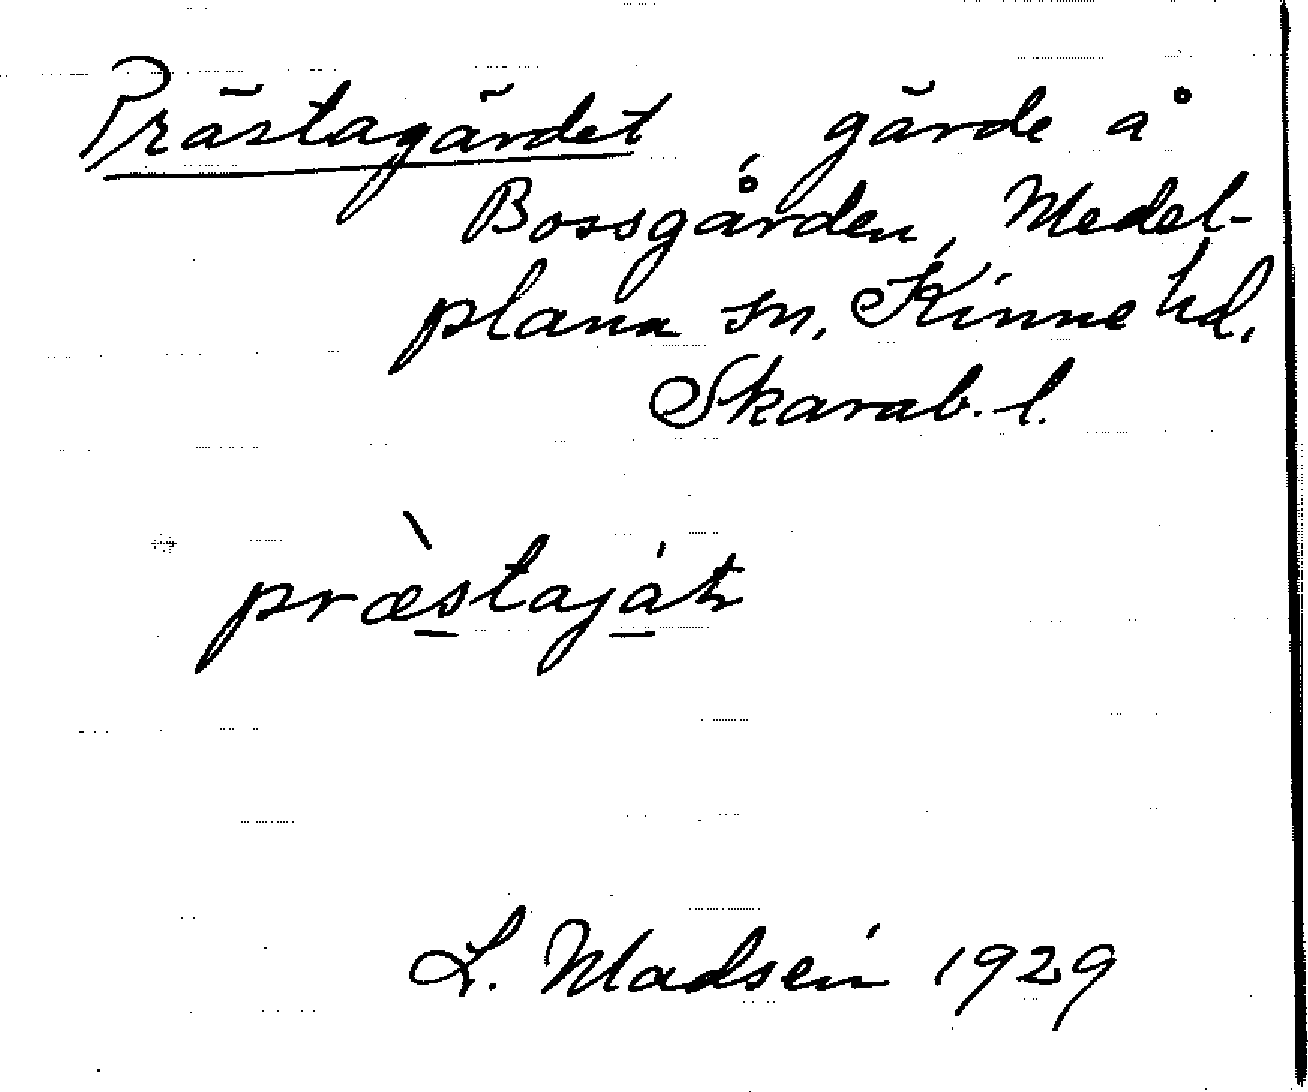 Prästagärdet, gärde å
Bossgården, Medel-
plana sn, Kinne hd,
Skarab. l.
præ̀staját
L. Madsén 1929